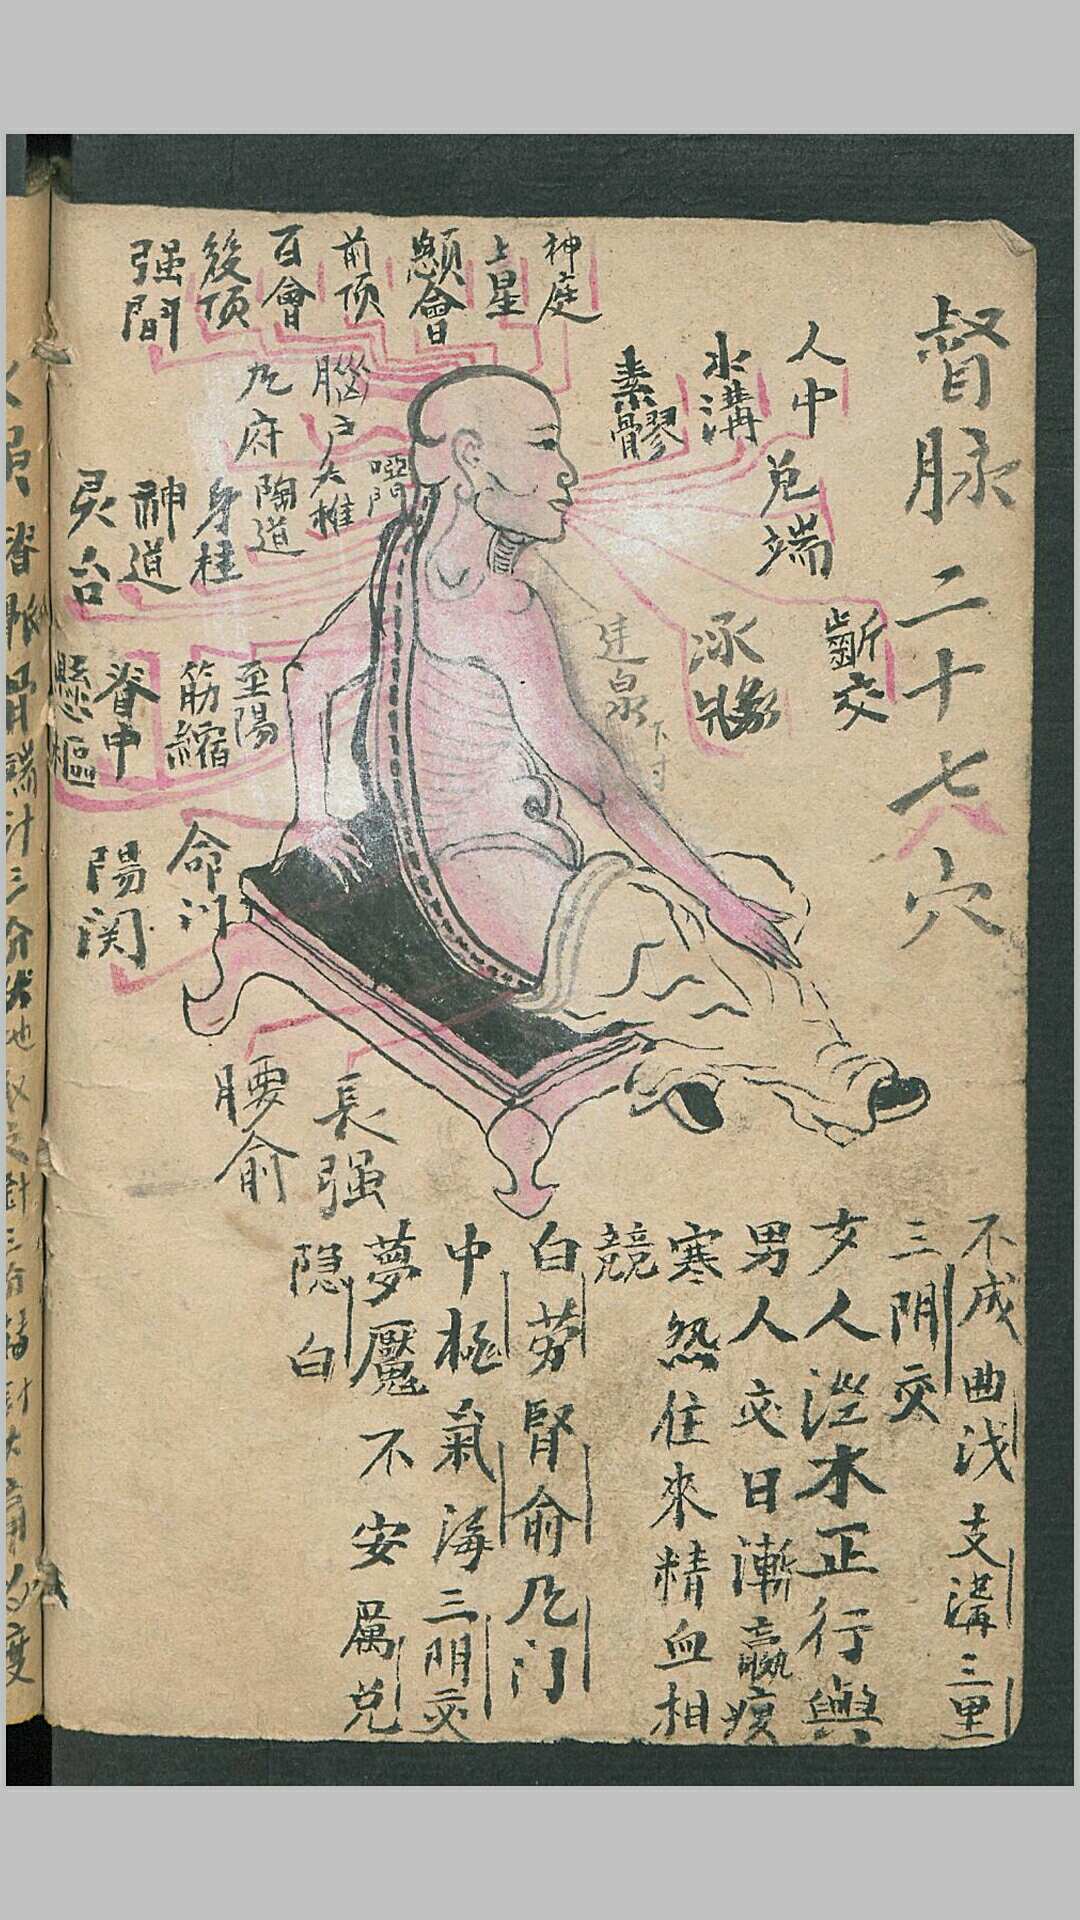 督脉二十七穴
人中
水溝
素髎
兑端
齗交
神庭
上星
顖會
前顶
百會
後顶
强間
腦户
府
瘂門
大椎
陶道
身柱
神道
灵台
至陽
筋縮
脊中
懸樞
命门
陽関
腰俞
長强
泉
下寸
不成曲浅支溝三里
三阴交
女人涇水正行與
男人交日漸羸瘦
寒热往來精血相
競
白劳腎俞门
中極氣海三阴交
夢魘不安厲兑
隐白